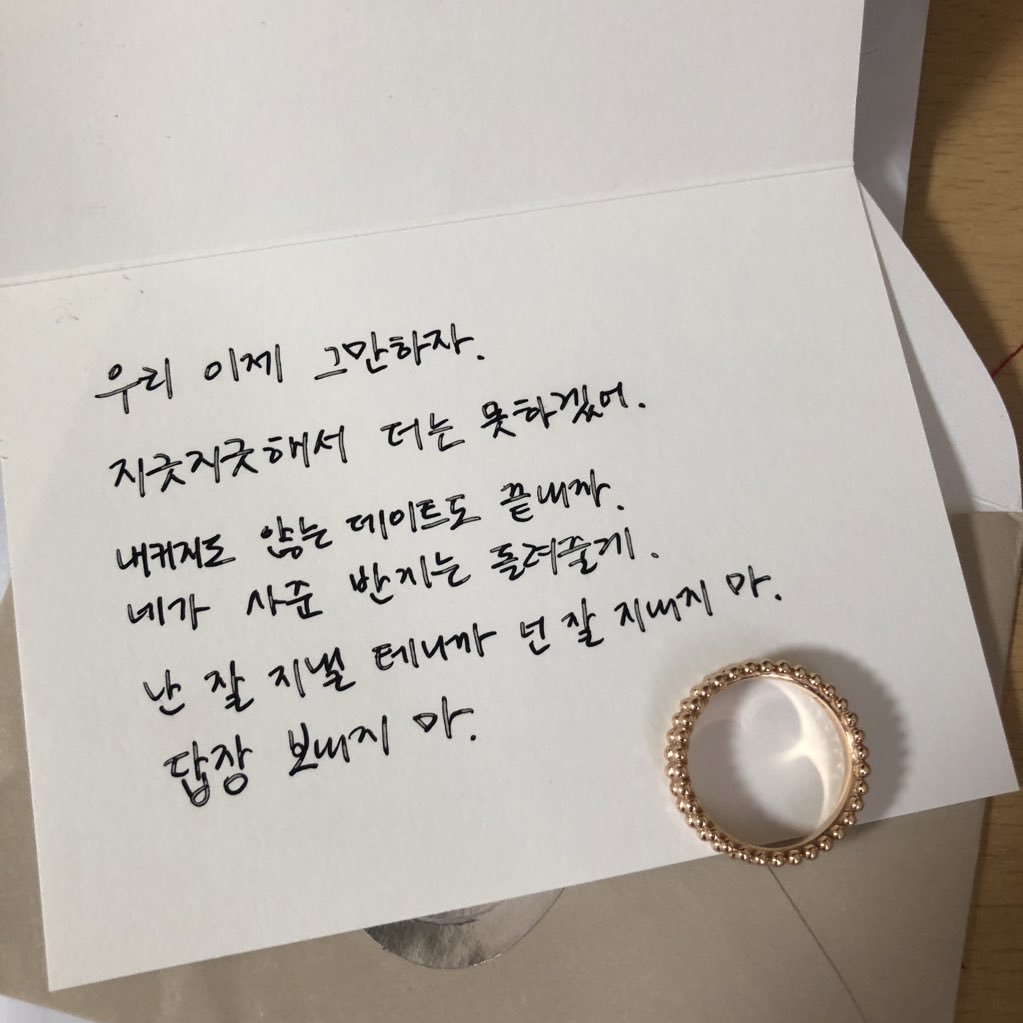 우리 이제 그만하자.
지긋지긋해서 더는 못하겠어.
내키지도 않는 데이트도 끝내자.
네가 사준 반지는 돌려줄게.
난 잘 지낼 테니까 넌 잘 지내지 마.
답장 보내지 마.